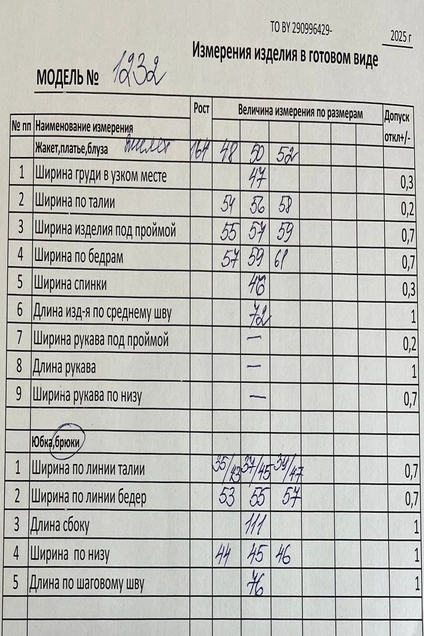 ТО BY 290996429-
2025 г
Измерения изделия в готовом виде
МОДЕЛЬ № 1232
Рост Величина измерения по размерам Допуск
№ пп Наименование измерения откл+/-
Жакет,платье,блуза жилет 164 48 50 52
1 Ширина груди в узком месте 47 0,3
2 Ширина по талии 54 56 58 0,2
3 Ширина изделия под проймой 55 57 59 0,7
4 Ширина по бедрам 57 59 61 0,7
5 Ширина спинки 46 0,3
6 Длина изд-я по среднему шву 72 1
7 Ширина рукава под проймой — 0,2
8 Длина рукава — 1
9 Ширина рукава по низу — 0,7
Юбка,брюки
1 Ширина по линии талии 35/43 37/45 39/47 0,7
2 Ширина по линии бедер 53 55 57 0,7
3 Длина сбоку 111 1
4 Ширина по низу 44 45 46 1
5 Длина по шаговому шву 76 1